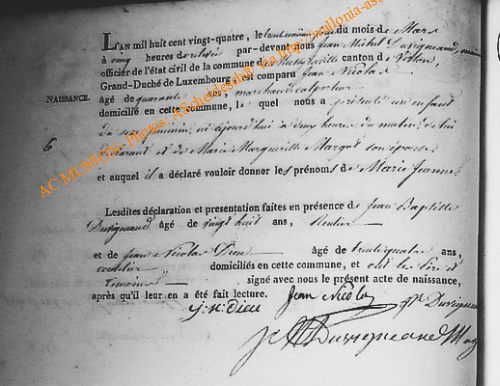 L'an mil huit cent vingt-quatre, le trente unième jour du mois de Mars
à cinq heures de relevée par-devant nous Jean Michel Duvigneaud,
officier de l'état civil de la commune de canton de Virton,
Grand-Duché de Luxembourg, est comparu Jean Nicolas
NAISSANCE. âgé de quarante ans, marchand colporteur
domicilié en cette commune, le quel nous a présenté un enfant
6 du sexe féminin, né aujourd'hui à deux heures du matin, de lui
déclarant et de Marie Marguerite Margot son épouse
et auquel il a déclaré vouloir donner les prénoms de Marie Jeanne.
Lesdites déclaration et presentation faites en présence de Jean Baptiste
Duvigneaud âgé de vingt huit ans, rentier
et de Jean Nicolas Dieu âgé de trente quatre ans,
domiciliés en cette commune, et ont les père et
témoins signé avec nous le présent acte de naissance,
après qu'il leur en a été fait lecture. Jean Nicolas
J. N. Dieu
Duvigneaud
AC MUSSON Photos